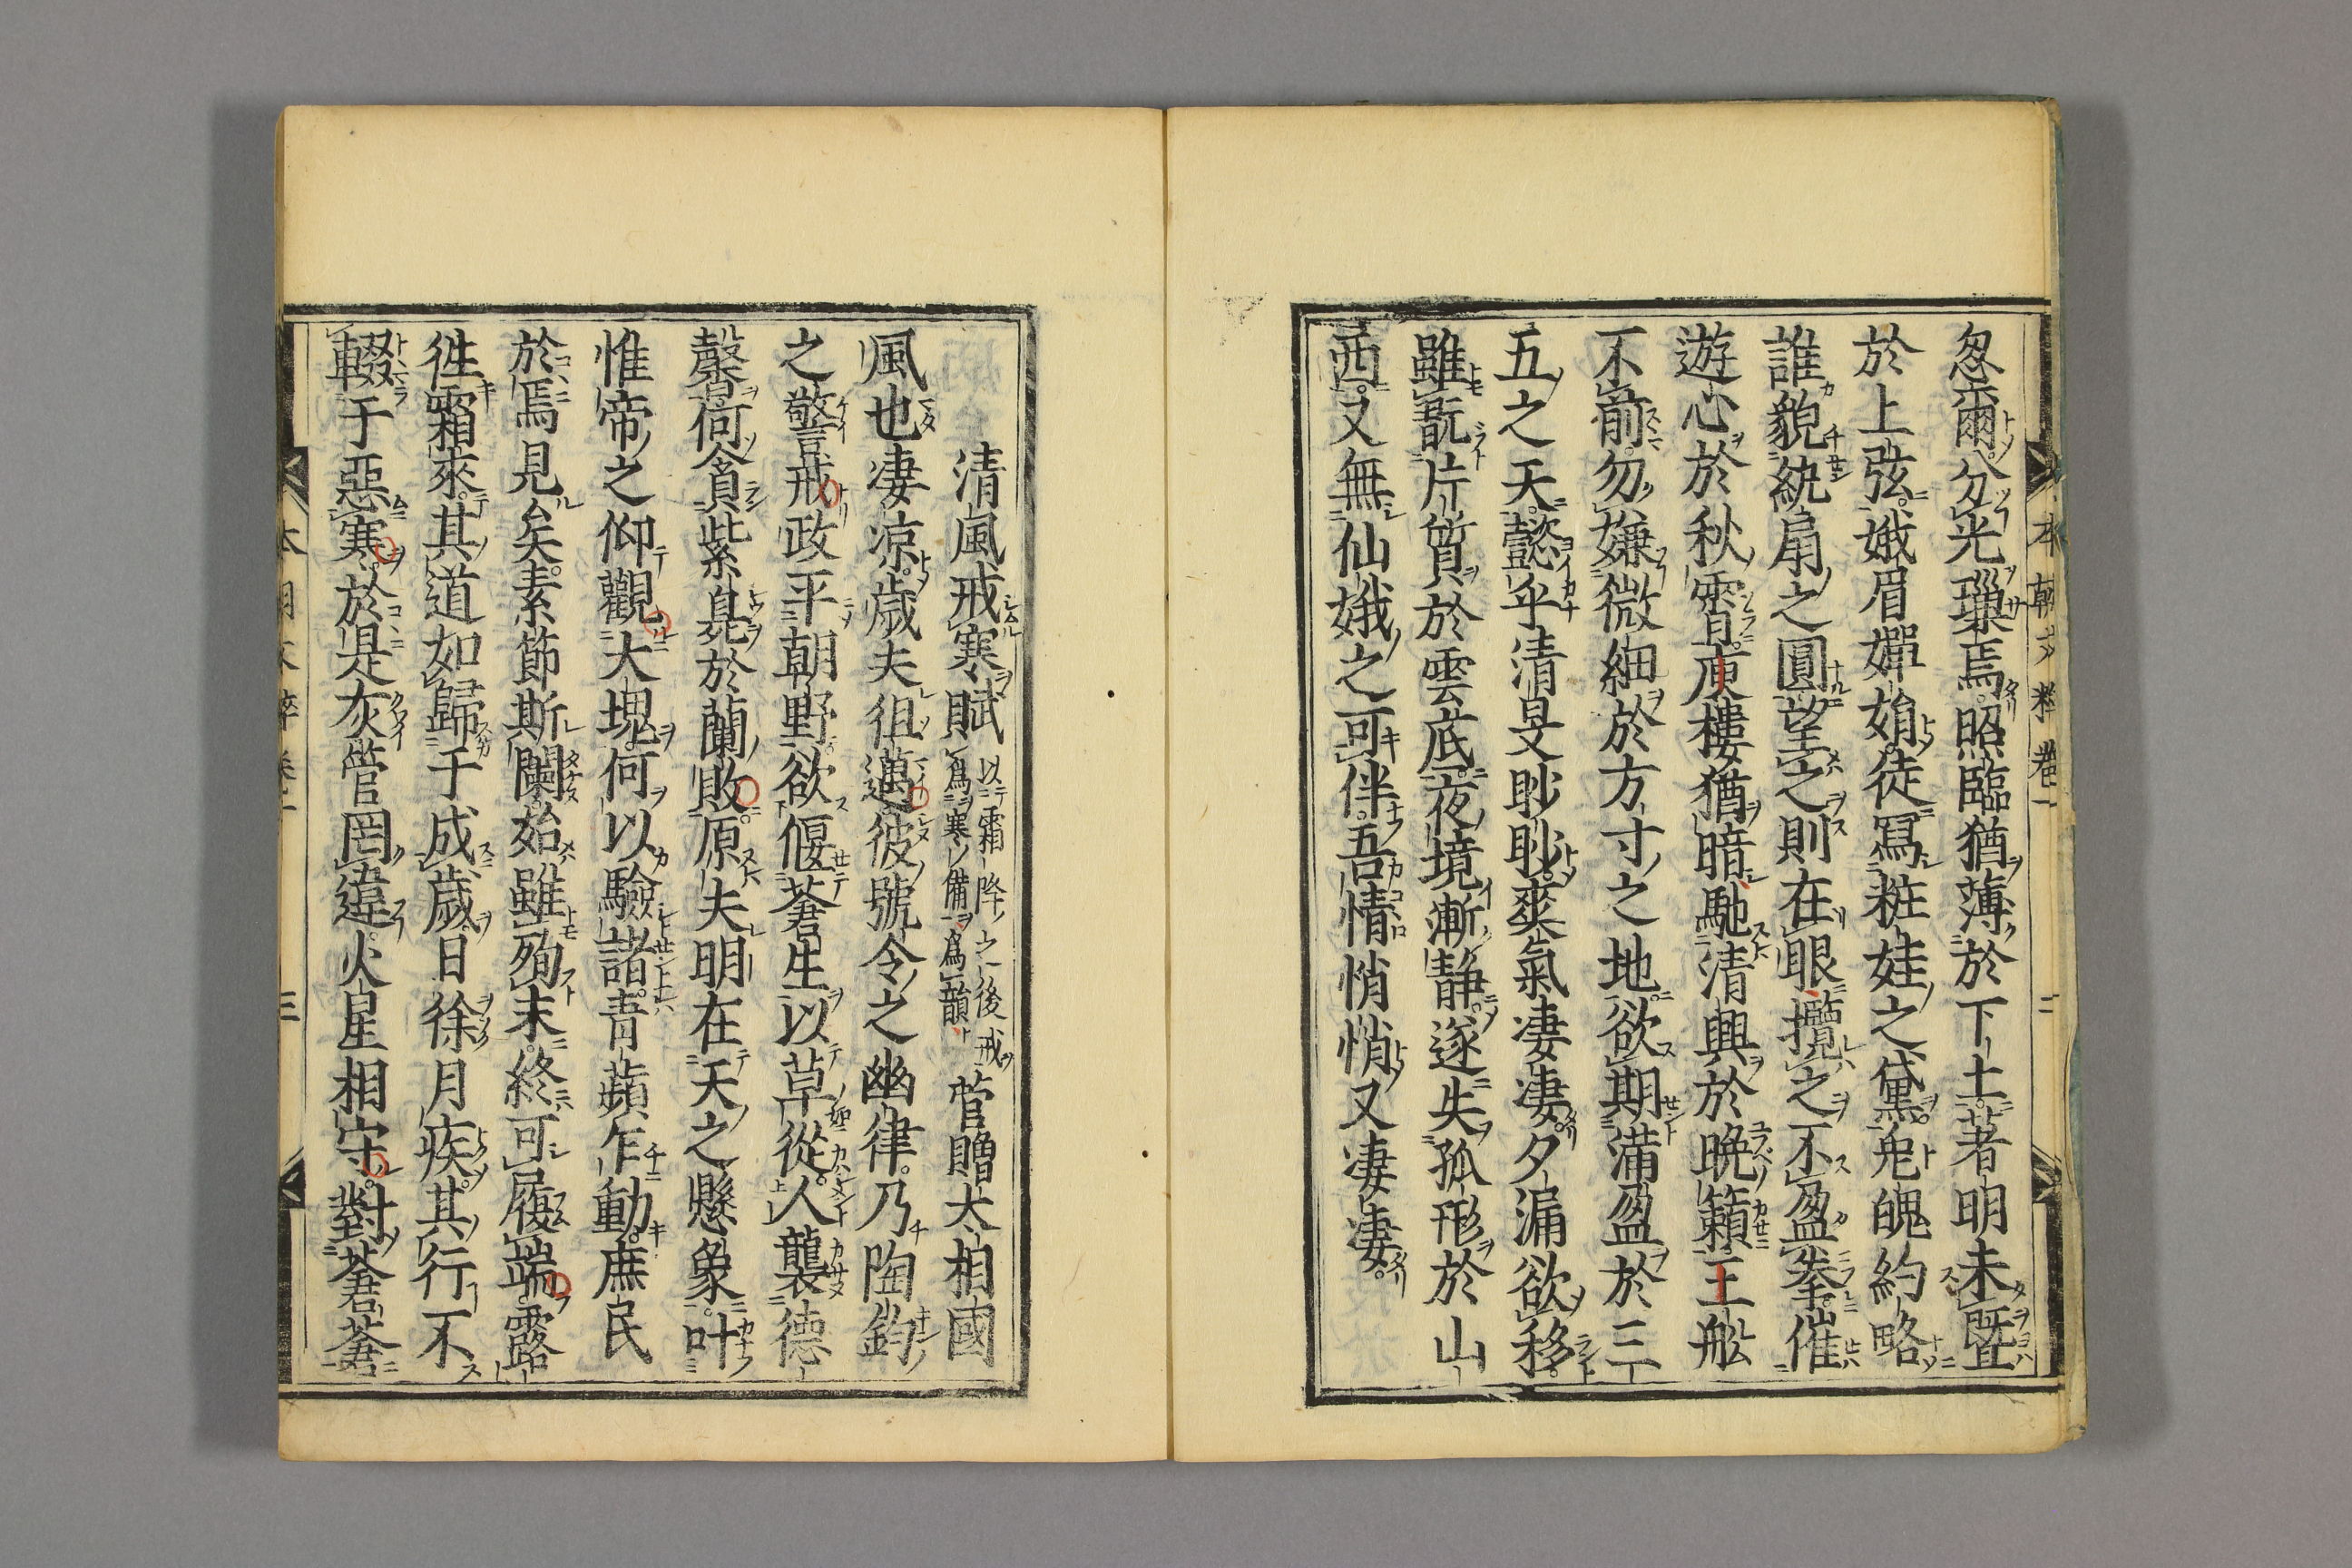 本朝文粹卷一 二
忽爾分光璅焉照臨猶薄於下土著明未旣
於上弦娥眉嬋娟徒冩粧娃之黛皃魄約略
誰貌紈扇之圓望之則在眼攬之不盈拳催
遊心於秋霄庾樓猶暗馳清興於晩籟王舩
不前勿嫌微細於方寸之地欲期滿盈於三
五之天懿乎清旻眇眇爽氣凄凄夕漏欲移
雖翫片質於雲底夜境漸靜遂失孤形於山
西又無仙娥之可伴吾情悄悄又凄凄
清風戒寒賦 以霜降之後戒爲寒備爲韻 菅贈大相國
風也凄凉歲夫徂邁彼號令之幽律乃陶鈞
之警戒政平朝野欲偃蒼生以草從人襲德
馨何貪紫皃於蘭敗原夫明在天之懸象叶
惟帝之仰觀大塊何以驗諸青蘋乍動庶民
於焉見矣素節斯闌始雖殉末終可履端露
徃霜來其道如歸于成歲日徐月疾其行不
輟于惡寒於是灰管罔違火星相守對蒼蒼
本朝文粹卷一 三